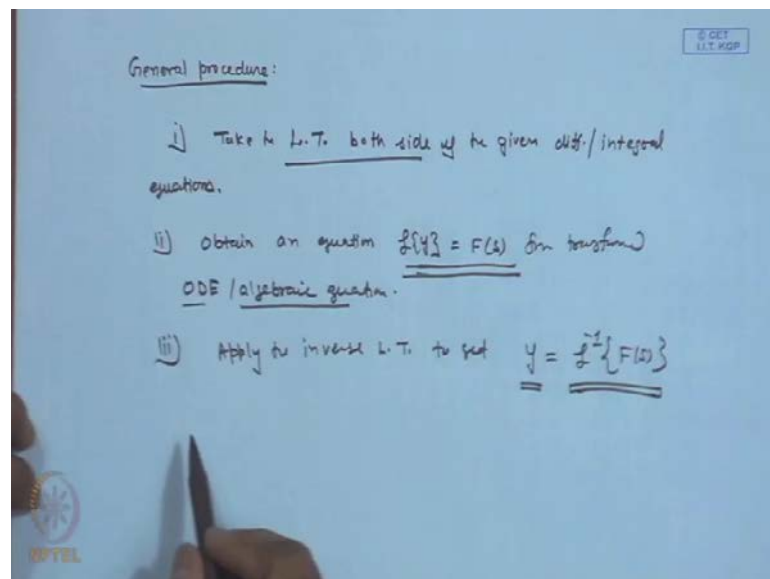 © CET
I.I.T. KGP
General procedure:
i) Take the L.T. both side of the given diff./integral
equations.
ii) Obtain an equation ℒ{y} = F(s) from transformed
ODE / algebraic equation.
iii) Apply the inverse L.T. to get y = ℒ⁻¹{F(s)}
NPTEL